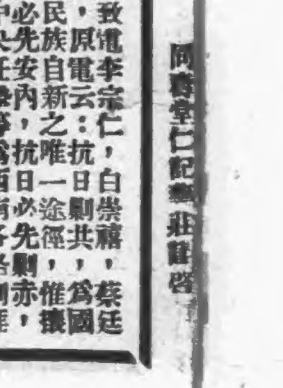 同壽堂仁記藥莊謹啓
致電李宗仁，白崇禧，蔡廷
，原電云：抗日剿共，爲國
民族自新之唯一途徑，惟攘
必先安內，抗日必先剿赤，